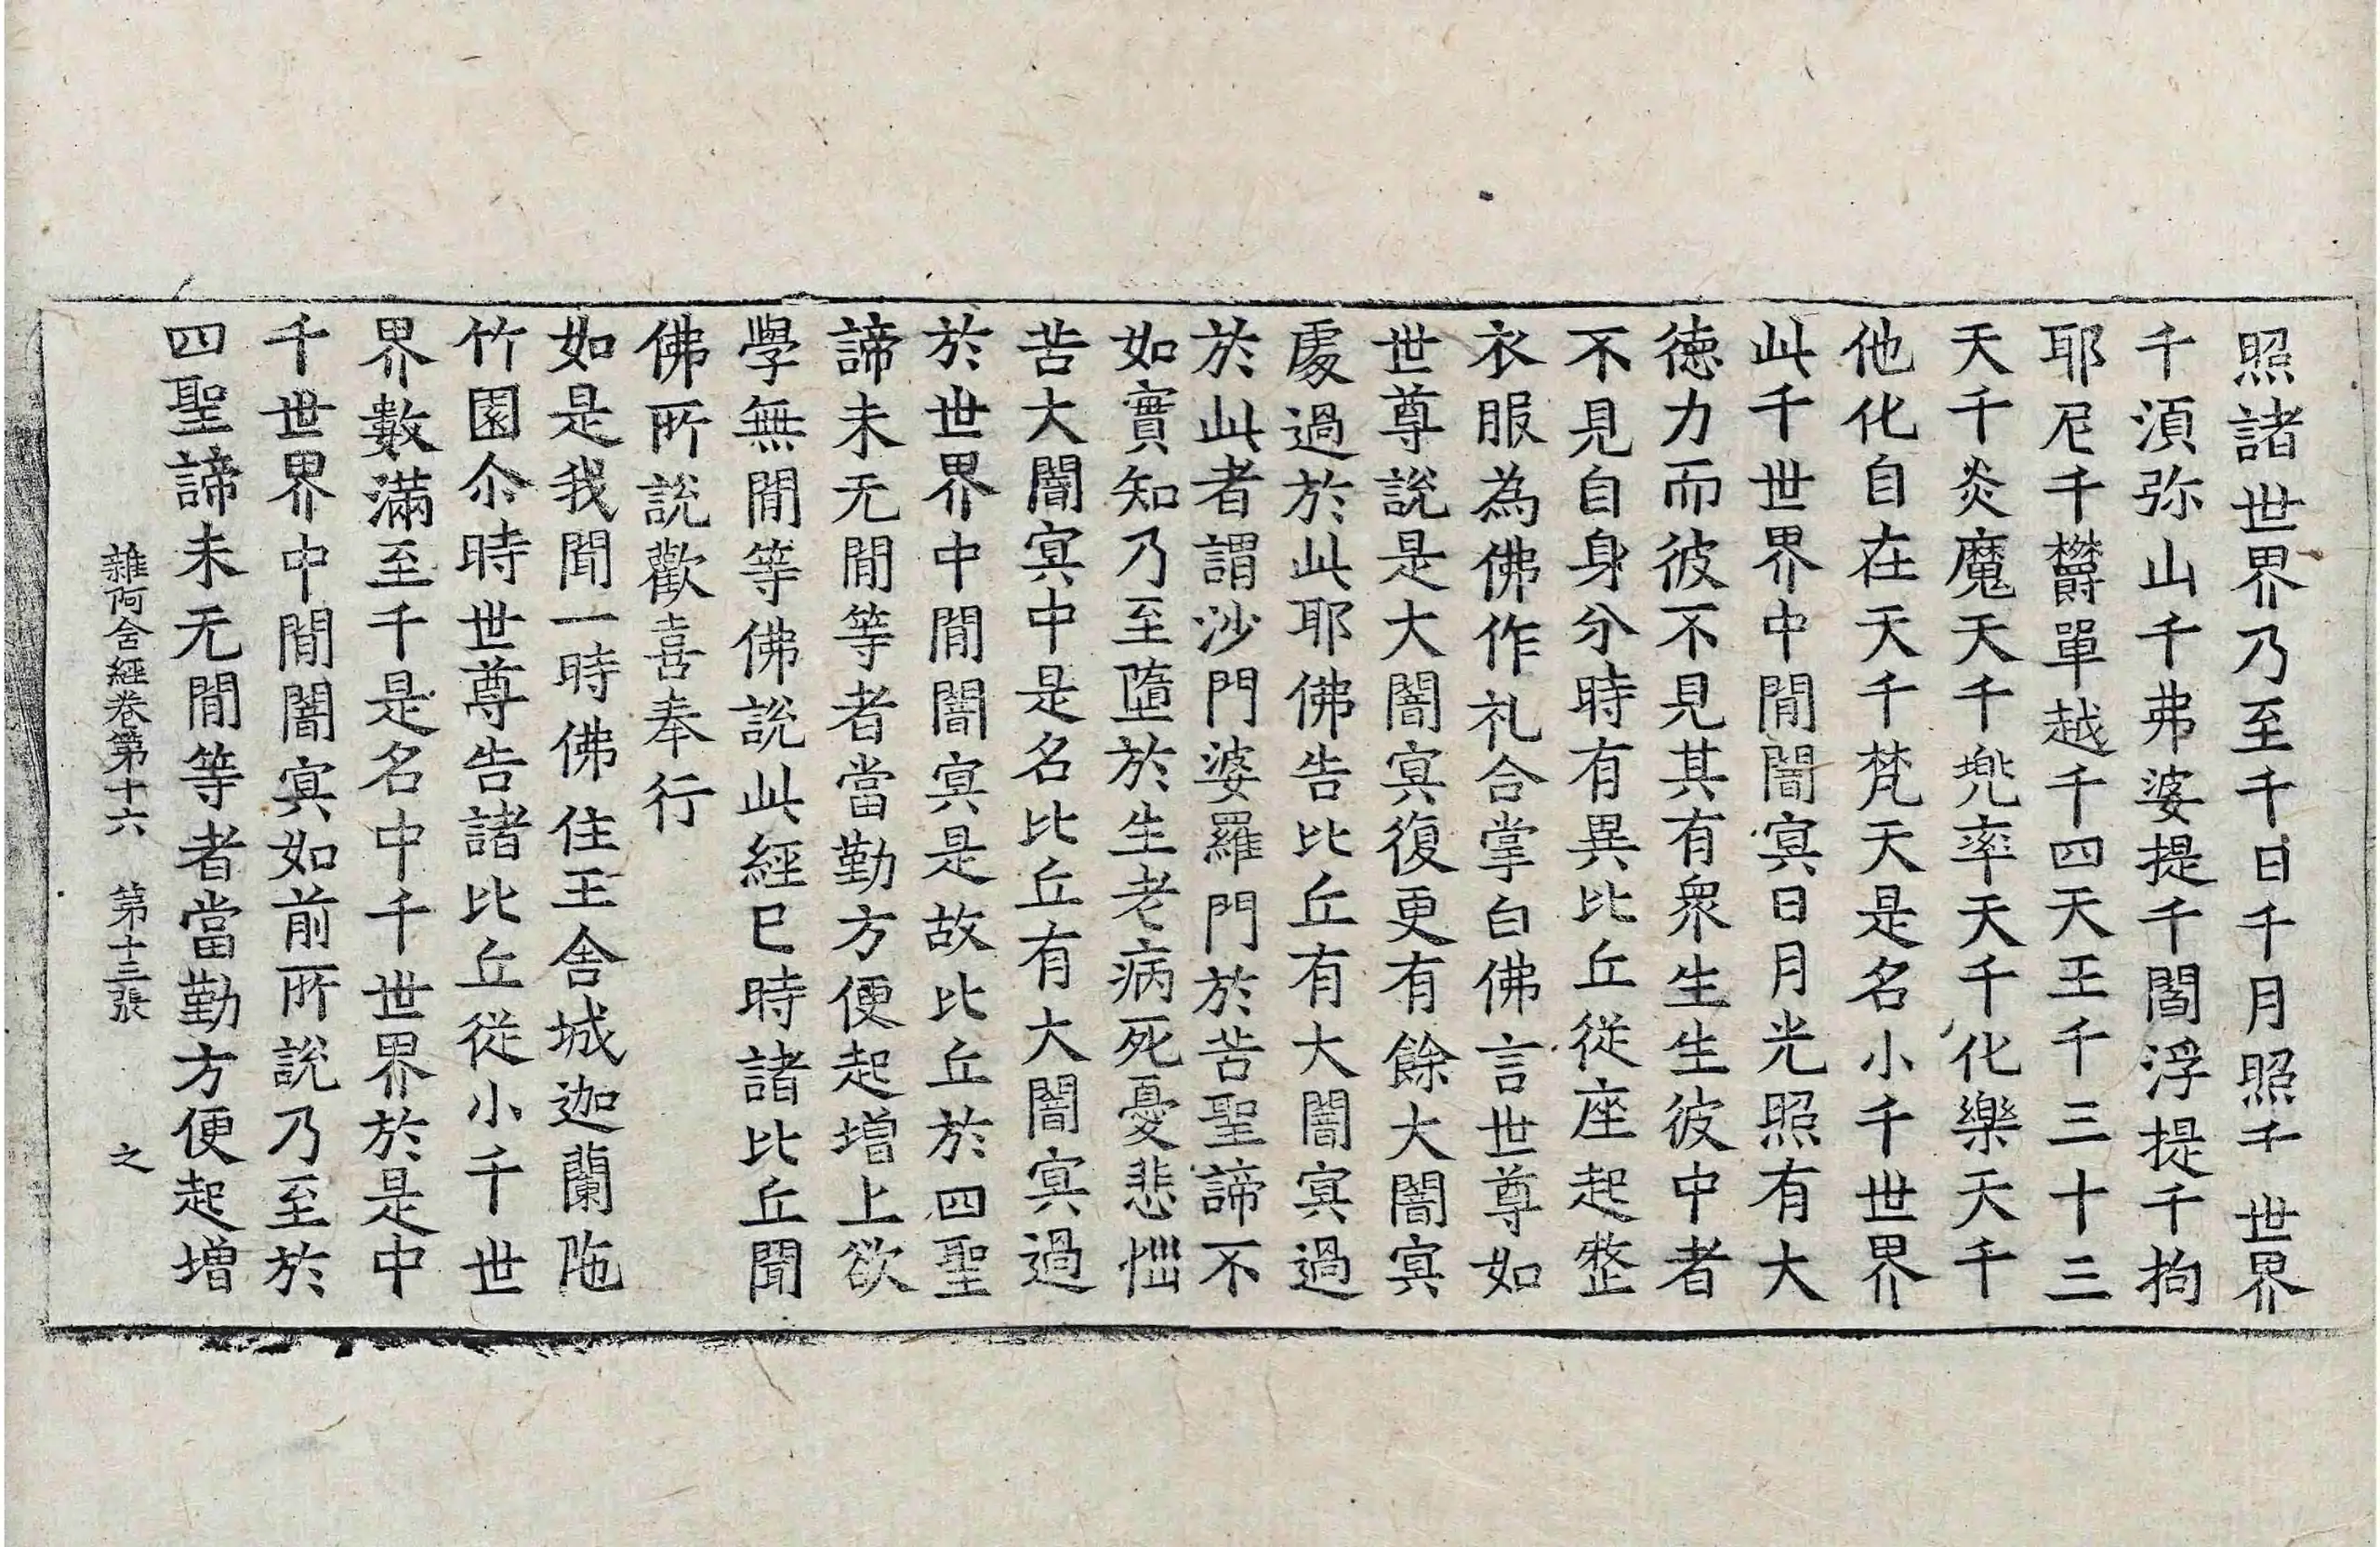 照諸世界乃至千日千月照千世界
千須弥山千弗婆提千閻浮提千拘
耶尼千欝單越千四天王千三十三
天千炎魔天千兠率天千化樂天千
他化自在天千梵天是名小千世界
此千世界中間闇冥日月光照有大
徳力而彼不見其有衆生生彼中者
不見自身分時有異比丘從座起整
衣服為佛作礼合掌白佛言世尊如
世尊說是大闇冥復更有餘大闇冥
處過於此耶佛告比丘有大闇冥過
於此者謂沙門婆羅門於苦聖諦不
如實知乃至墮於生老病死憂悲惱
苦大闇冥中是名比丘有大闇冥過
於世界中間闇冥是故比丘於四聖
諦未无間等者當勤方便起增上欲
學無間等佛說此經已時諸比丘聞
佛所說歡喜奉行
如是我聞一時佛住王舍城迦蘭陁
竹園尒時世尊告諸比丘從小千世
界數滿至千是名中千世界於是中
千世界中間闇冥如前所說乃至於
四聖諦未无間等者當勤方便起增
雜阿含經卷第十六 第十三張 之